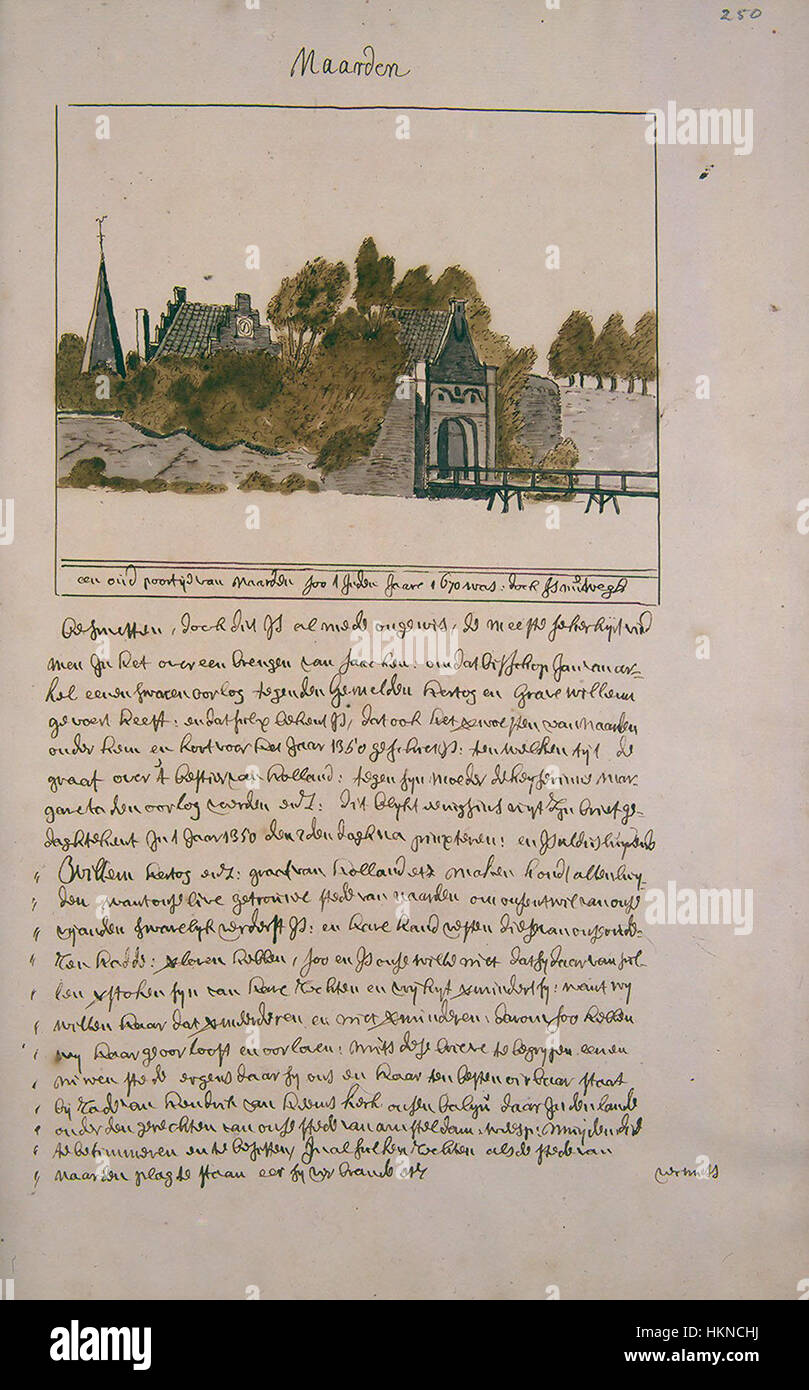 250
Naarden
een oúd poortje van Naarden soo 't Inden Jaare 1670 was. doch Is nú wegh
besmetten, doch dit Is al mede ongewis, de meeste sekerhijt vind
men In het over een brengen van saacken: omdat bisschop Jan van ar-
kel eenen swaren oorlog tegen den gemelden hertog en grave willem
gevoert heeft: en dat sulx bekent Is, dat ook het woesten van Naarden
onder hem en kort voor het Jaar 1350 geschiet Is: ten welken tijt de
graaf over 't bestier van holland: tegen sijn moeder de keyserinne mar-
gareta den oorlog voerden
dagtekent In 't Jaar 1350 den 2den dagh na pinxteren: en Is
Willem hertog endz: graaf van holland etz maken kond allen luy-
den want onse live getrouwe stede van naarden om onsent wil van onse
vijanden swarelyk verderft Is: en hare hand vesten die sy van ons oude-
ren hadde: verloren hebben, soo en Is onse wille niet dat sy daar van sul-
len verstoken syn van hare rechten en vryhyt vermindert sy: want wy
willen haar dat vermeerderen en niet verminderen: darom soo hebben
wy haar geoorlooft en oorloven: mits dese brieve te begrypen eenen
niwen stede ergens daar sy ons en haar ten besten oirbaar staat
bij rade van hendrik van heemskerk onsen baljú daar In den lande
onder den gerechten van onse stede van amsteldam: weesp: muyden die
te betimmeren en te besitten, In al sulken rechten als de stede van
naarden plag te staan eer sy verbrande etz
vermits
alamy stock photo
alamy
Image ID: HKNCHJ
www.alamy.com